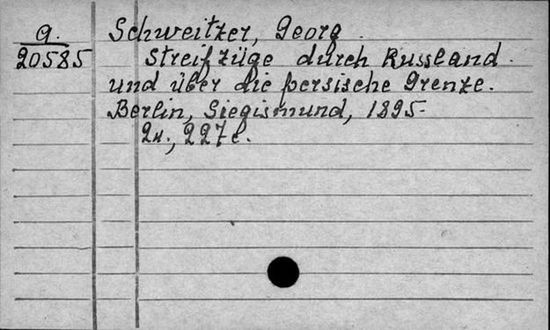 g.
20585
Schweitzer, Georg.
Streifzüge durch Russland
und über die persische Grenze.
Berlin, Siegismund, 1895.
2н., 227 с.